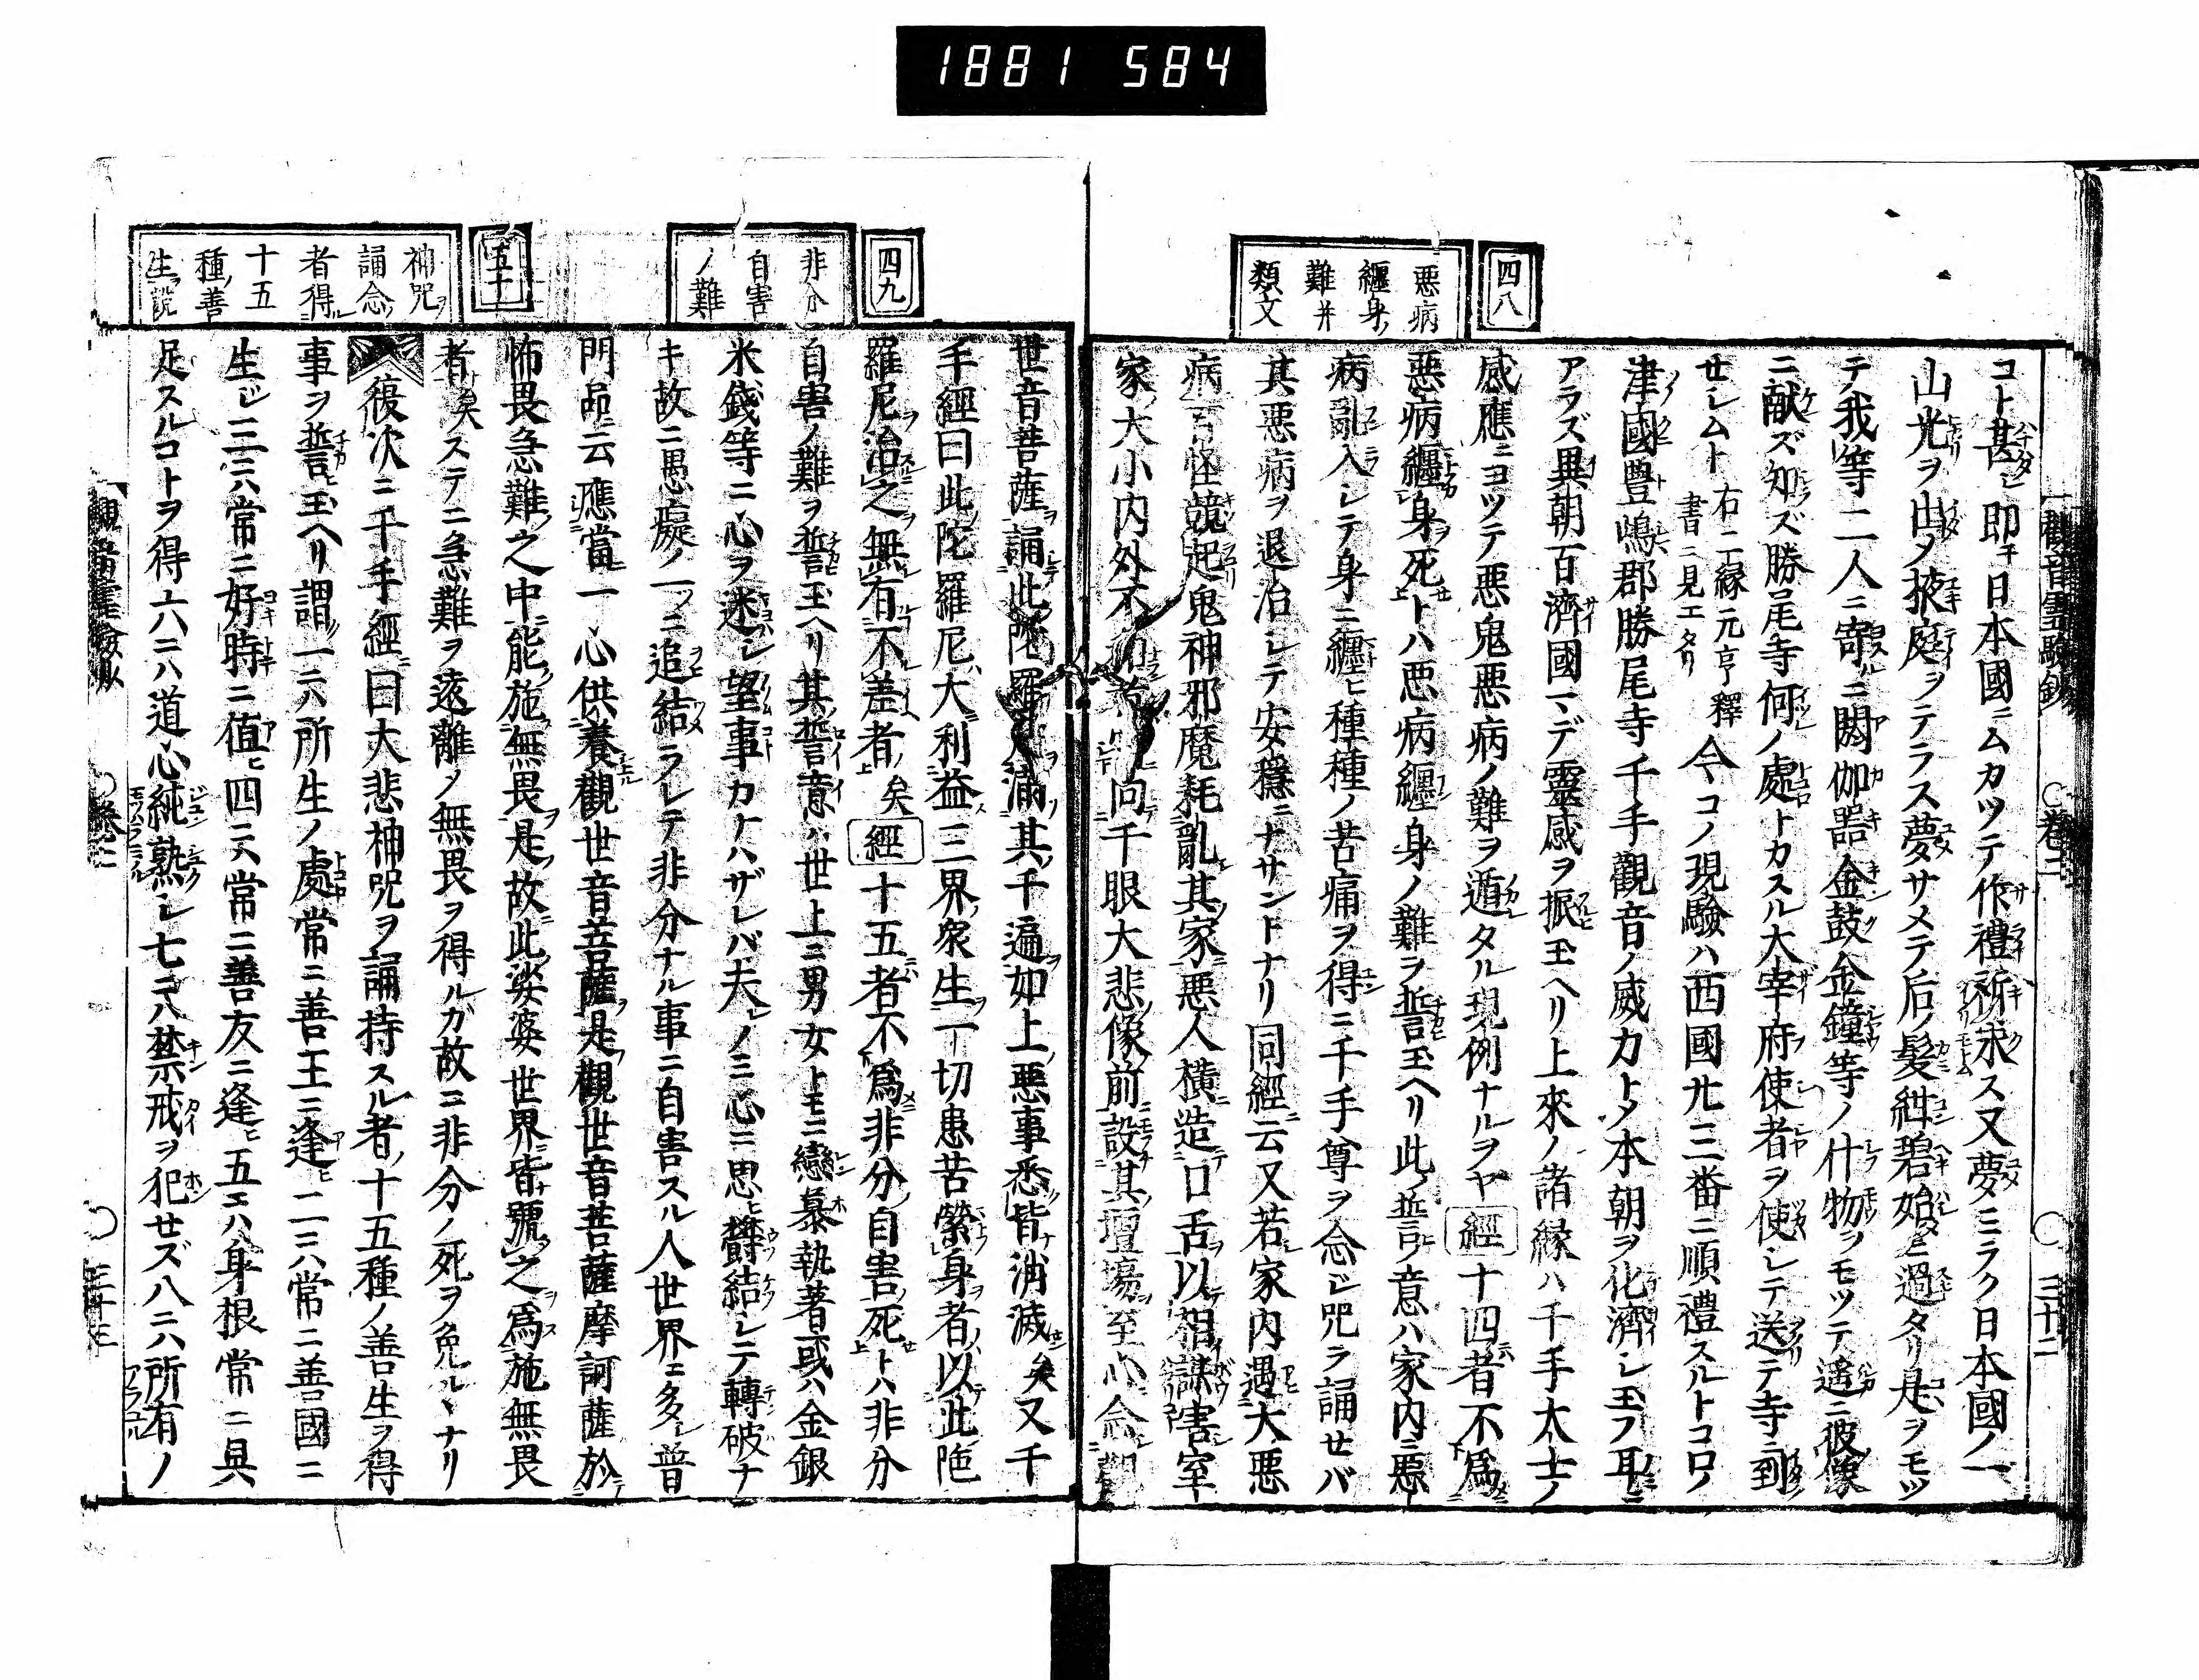 1881 584
観音霊験鈔 ○巻二 ○ 三十二
四八
悪病
纏身ノ
難并
類文
コト甚シ即チ日本國ニムカツテ作禮祈求ス又夢ミラク日本國ノ一
山光ヲ出メ掖庭ヲテラス夢サメテ后ノ髪紺碧始ニ過タリ是ヲモツ
テ我等二人ニ寄ニ閼伽器金鼓金鐘等ノ什物ヲモツテ遙ニ彼像
ニ献ズ知ズ勝尾寺何ノ處トカスル大宰府使者ヲ使シテ送テ寺ニ到
セシムト右二縁元亨釋書ニ見エタリ今コノ現驗ハ西國廿三番ニ順禮スルトコロノ
津國豊嶋郡勝尾寺千手觀音ノ威力トメ本朝ヲ化濟シ玉フ耳ニ
アラズ異朝百濟國マデ靈感ヲ振玉ヘリ上來ノ諸縁ハ千手大士ノ
感應ニヨツテ悪鬼悪病ノ難ヲ遁タル現例ナルヲヤ經十四者不爲
惡病纏身死トハ悪病纏身ノ難ヲ誓玉ヘリ此誓ノ意ハ家内ニ悪
病亂入シテ身ニ纏ヒ種種ノ苦痛ヲ得ニ千手尊ヲ念ジ咒ヲ誦セバ
其悪病ヲ退治シテ安穩ニナサントナリ同經云又若家内遇大悪
病百怪競起鬼神邪魔耗亂其家悪人横造口舌以相謀害室
家大小内外不 向千眼大悲像前設其壇場至心念觀
四九
非分
自害
ノ難
五十
神咒ヲ
誦念
者得ル
十五
種ノ善
生ヲ説
世音菩薩誦此陀羅尼滿其千遍如上悪事悉皆消滅矣又千
手經曰此陀羅尼大利益三界衆生一切患苦縈身者以此陀
羅尼治之無有不差者矣經十五者不爲非分自害死トハ非分
自害ノ難ヲ誓玉ヘリ其誓意ハ世上ニ男女トモニ戀慕執著或ハ金銀
米錢等ニ心ヲ迷シ望事カナハザレバ夫レノミ心ニ思ヒ欝結シテ轉破ナ
キ故ニ愚癡ノ一ツニ追結ラレテ非分ナル事ニ自害スル人世界ニ多シ普
門品云應當一心供養觀世音菩薩是觀世音菩薩摩訶薩於
怖畏急難之中能施無畏是故此娑婆世界皆號之爲施無畏
者矣ステニ急難ヲ遠離ノ無畏ヲ得ルガ故ニ非分ノ死ヲ免ルヽナリ
復次ニ千手經曰大悲神咒ヲ誦持スル者ハ十五種ノ善生ヲ得
事ヲ誓玉ヘリ謂一ニハ所生ノ處常ニ善王ニ逢ヒ二ニハ常ニ善國ニ
生ジ三ニハ常ニ好時ニ値ヒ四ニハ常ニ善友ニ逢ヒ五ニハ身根常ニ具
足スルコトヲ得六ニハ道心純熟シ七ニハ禁戒ヲ犯セズ八ニハ所有ノ
観音霊験鈔 ○巻二 ○ 三十三